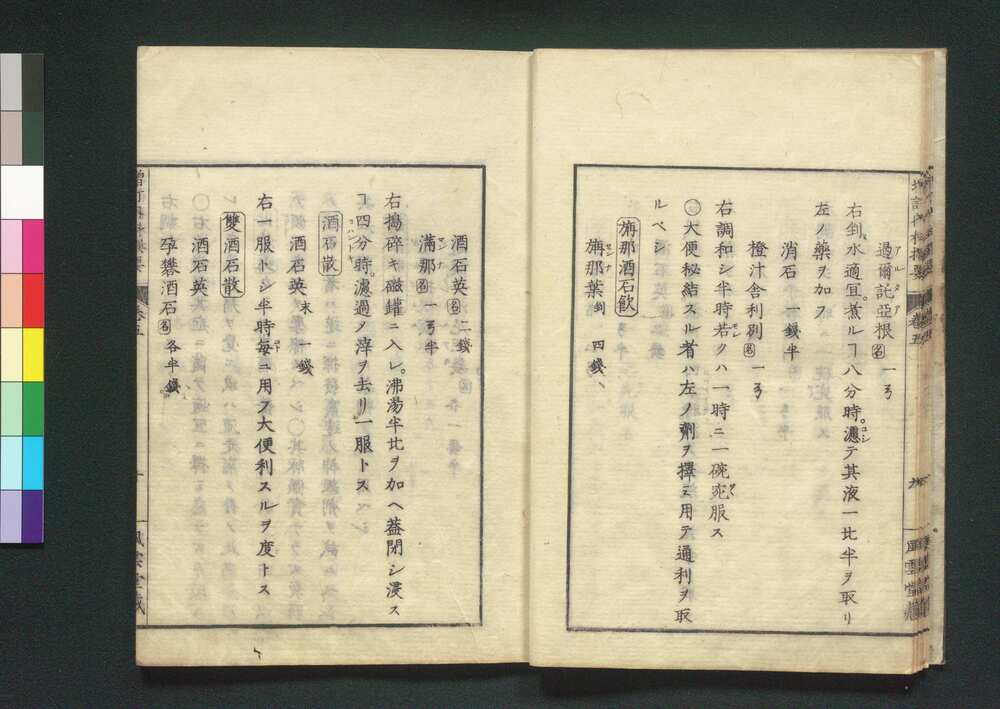 過爾託亞根 名 一弓
右剉水適宜煮ルヿ八分時。濾テ其液一比半ヲ取リ
左ノ藥ヲ加フ
消石 一錢半
橙汁舎利別 名 一弓
右調和シ半時若クハ一時ニ一碗宛服ス
〇大便秘結スル者ハ左ノ劑ヲ擇ミ用テ通利ヲ取
ルベシ
旃那酒石飲
旃那葉 剉 四錢
酒石英 名 二錢
滿那 名 一弓半
右搗碎キ磁罐ニ入レ。沸湯半比ヲ加ヘ蓋閉シ浸ス
ヿ四分時。濾過ノ滓ヲ去リ一服トス
酒石散
酒石英 末 一錢
右一服トシ半時每ニ用フ大便利スルヲ度トス
雙酒石散
酒石英
孕礬酒石 名 各半錢